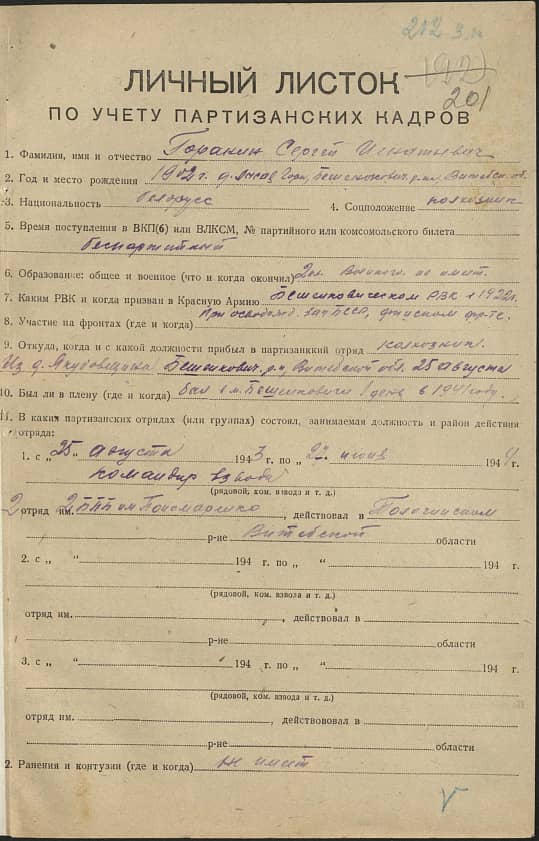 212 з.н
(92)
201
ЛИЧНЫЙ ЛИСТОК
ПО УЧЕТУ ПАРТИЗАНСКИХ КАДРОВ
1. Фамилия, имя и отчество Горанин Сергей Игнатьевич
2. Год и место рождения 1902 г. д. Гора, Бешенкович. р-на Витебск. об.
3. Национальность белорусс 4. Соцположение колхозник
5. Время поступления в ВКП(б) или ВЛКСМ, № партийного или комсомольского билета
беспартийный
6. Образование: общее и военное (что и когда окончил) 2 кл. Военного не имеет.
7. Каким РВК и когда призван в Красную Армию Бешенковическом РВК в 1922 г.
8. Участие на фронтах (где и когда) При освобожд. зап БССР, финском фр-те.
9. Откуда, когда и с какой должности прибыл в партизанский отряд колхозник.
Из д. Якубовщина Бешенкович. р-н, Витебской обл. 25 августа
10. Был ли в плену (где и когда) был в м. Бешенковичи 1 день в 1941 году.
11. В каких партизанских отрядах (или группах) состоял, занимаемая должность и район действия
отряда:
1. с „ 25 “ августа 1943 г. по „ 27 “ июня 1944 г.
командир взвода
(рядовой, ком. взвода и т. д.)
2 отряд им. 2 БПП им Пономаренко, действовал в
р-не Витебской области
2. с „ “ 194 г. по „ “ 194 г.
(рядовой, ком. взвода и т. д.)
отряд им. , действовал в
р-не области
3. с „ “ 194 г. по „ “ 194 г.
(рядовой, ком. взвода и т. д.)
отряд им. , действововал в
р-не области
2. Ранения и контузии (где и когда) не имеет
V